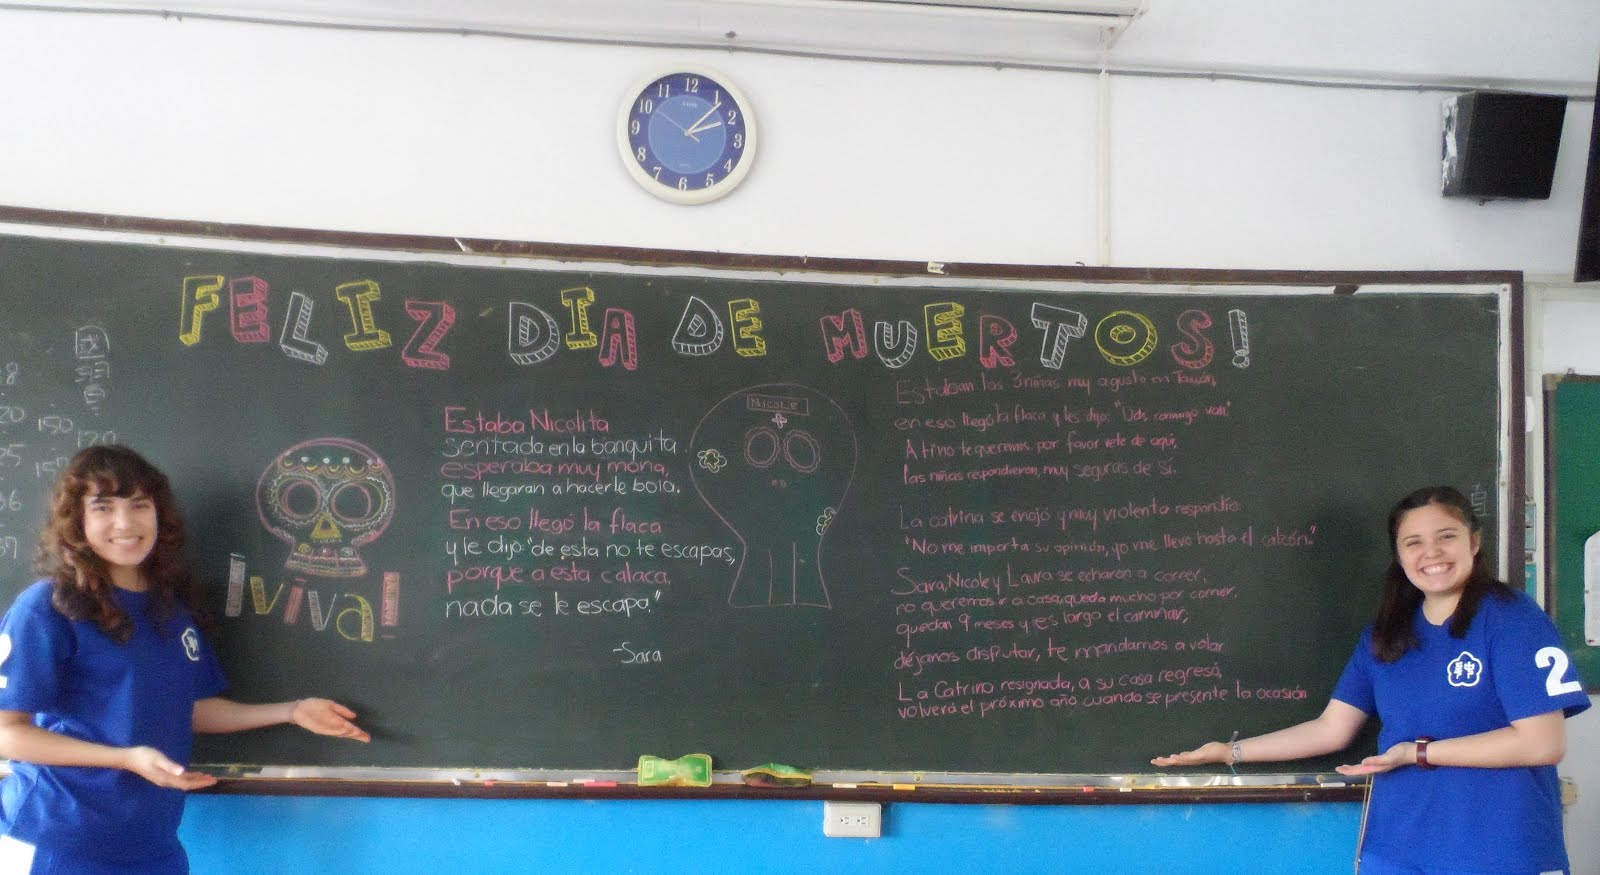 FELIZ DIA DE MUERTOS!
Estaba Nicolita
sentada en la banquita
esperaba muy mona,
que llegaran a hacerle bola.
En eso llegó la flaca
y le dijo "de esta no te escapas,
porque a esta calaca,
nada se le escapa."
-Sara
¡viva!
NICOLE
Estaban las 3 niñas muy agusto en Taiwán,
en eso llegó la flaca y les dijo: "Uds. conmigo van"
A ti no te queremos, por favor vete de aquí,
las niñas respondieron, muy seguras de sí.
La catrina se enojó y muy violenta respondió:
"No me importa su opinión, yo me llevo hasta el calzón."
Sara, Nicole y Laura se echaron a correr,
no queremos ir a casa, queda mucho por comer,
quedan 9 meses y es largo el caminar,
déjanos disfrutar, te mandamos a volar
La Catrina resignada, a su casa regresó,
volverá el próximo año cuando se presente la ocasión
12
1
2
3
4
5
6
7
8
9
10
11
150
120
20
25
2
2